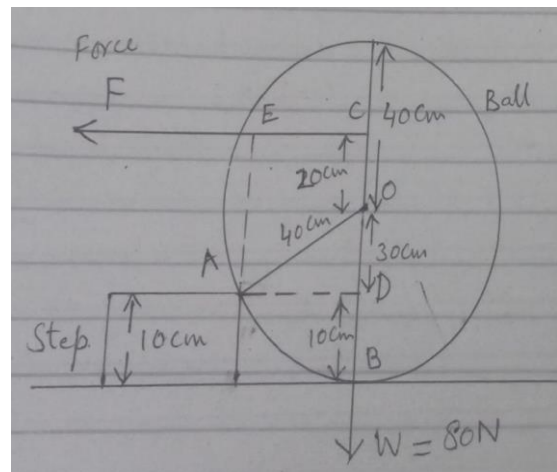 Force
F
E
C
40cm
Ball
20cm
O
40cm
30cm
A
D
Step.
10cm
10cm
B
W = 80N